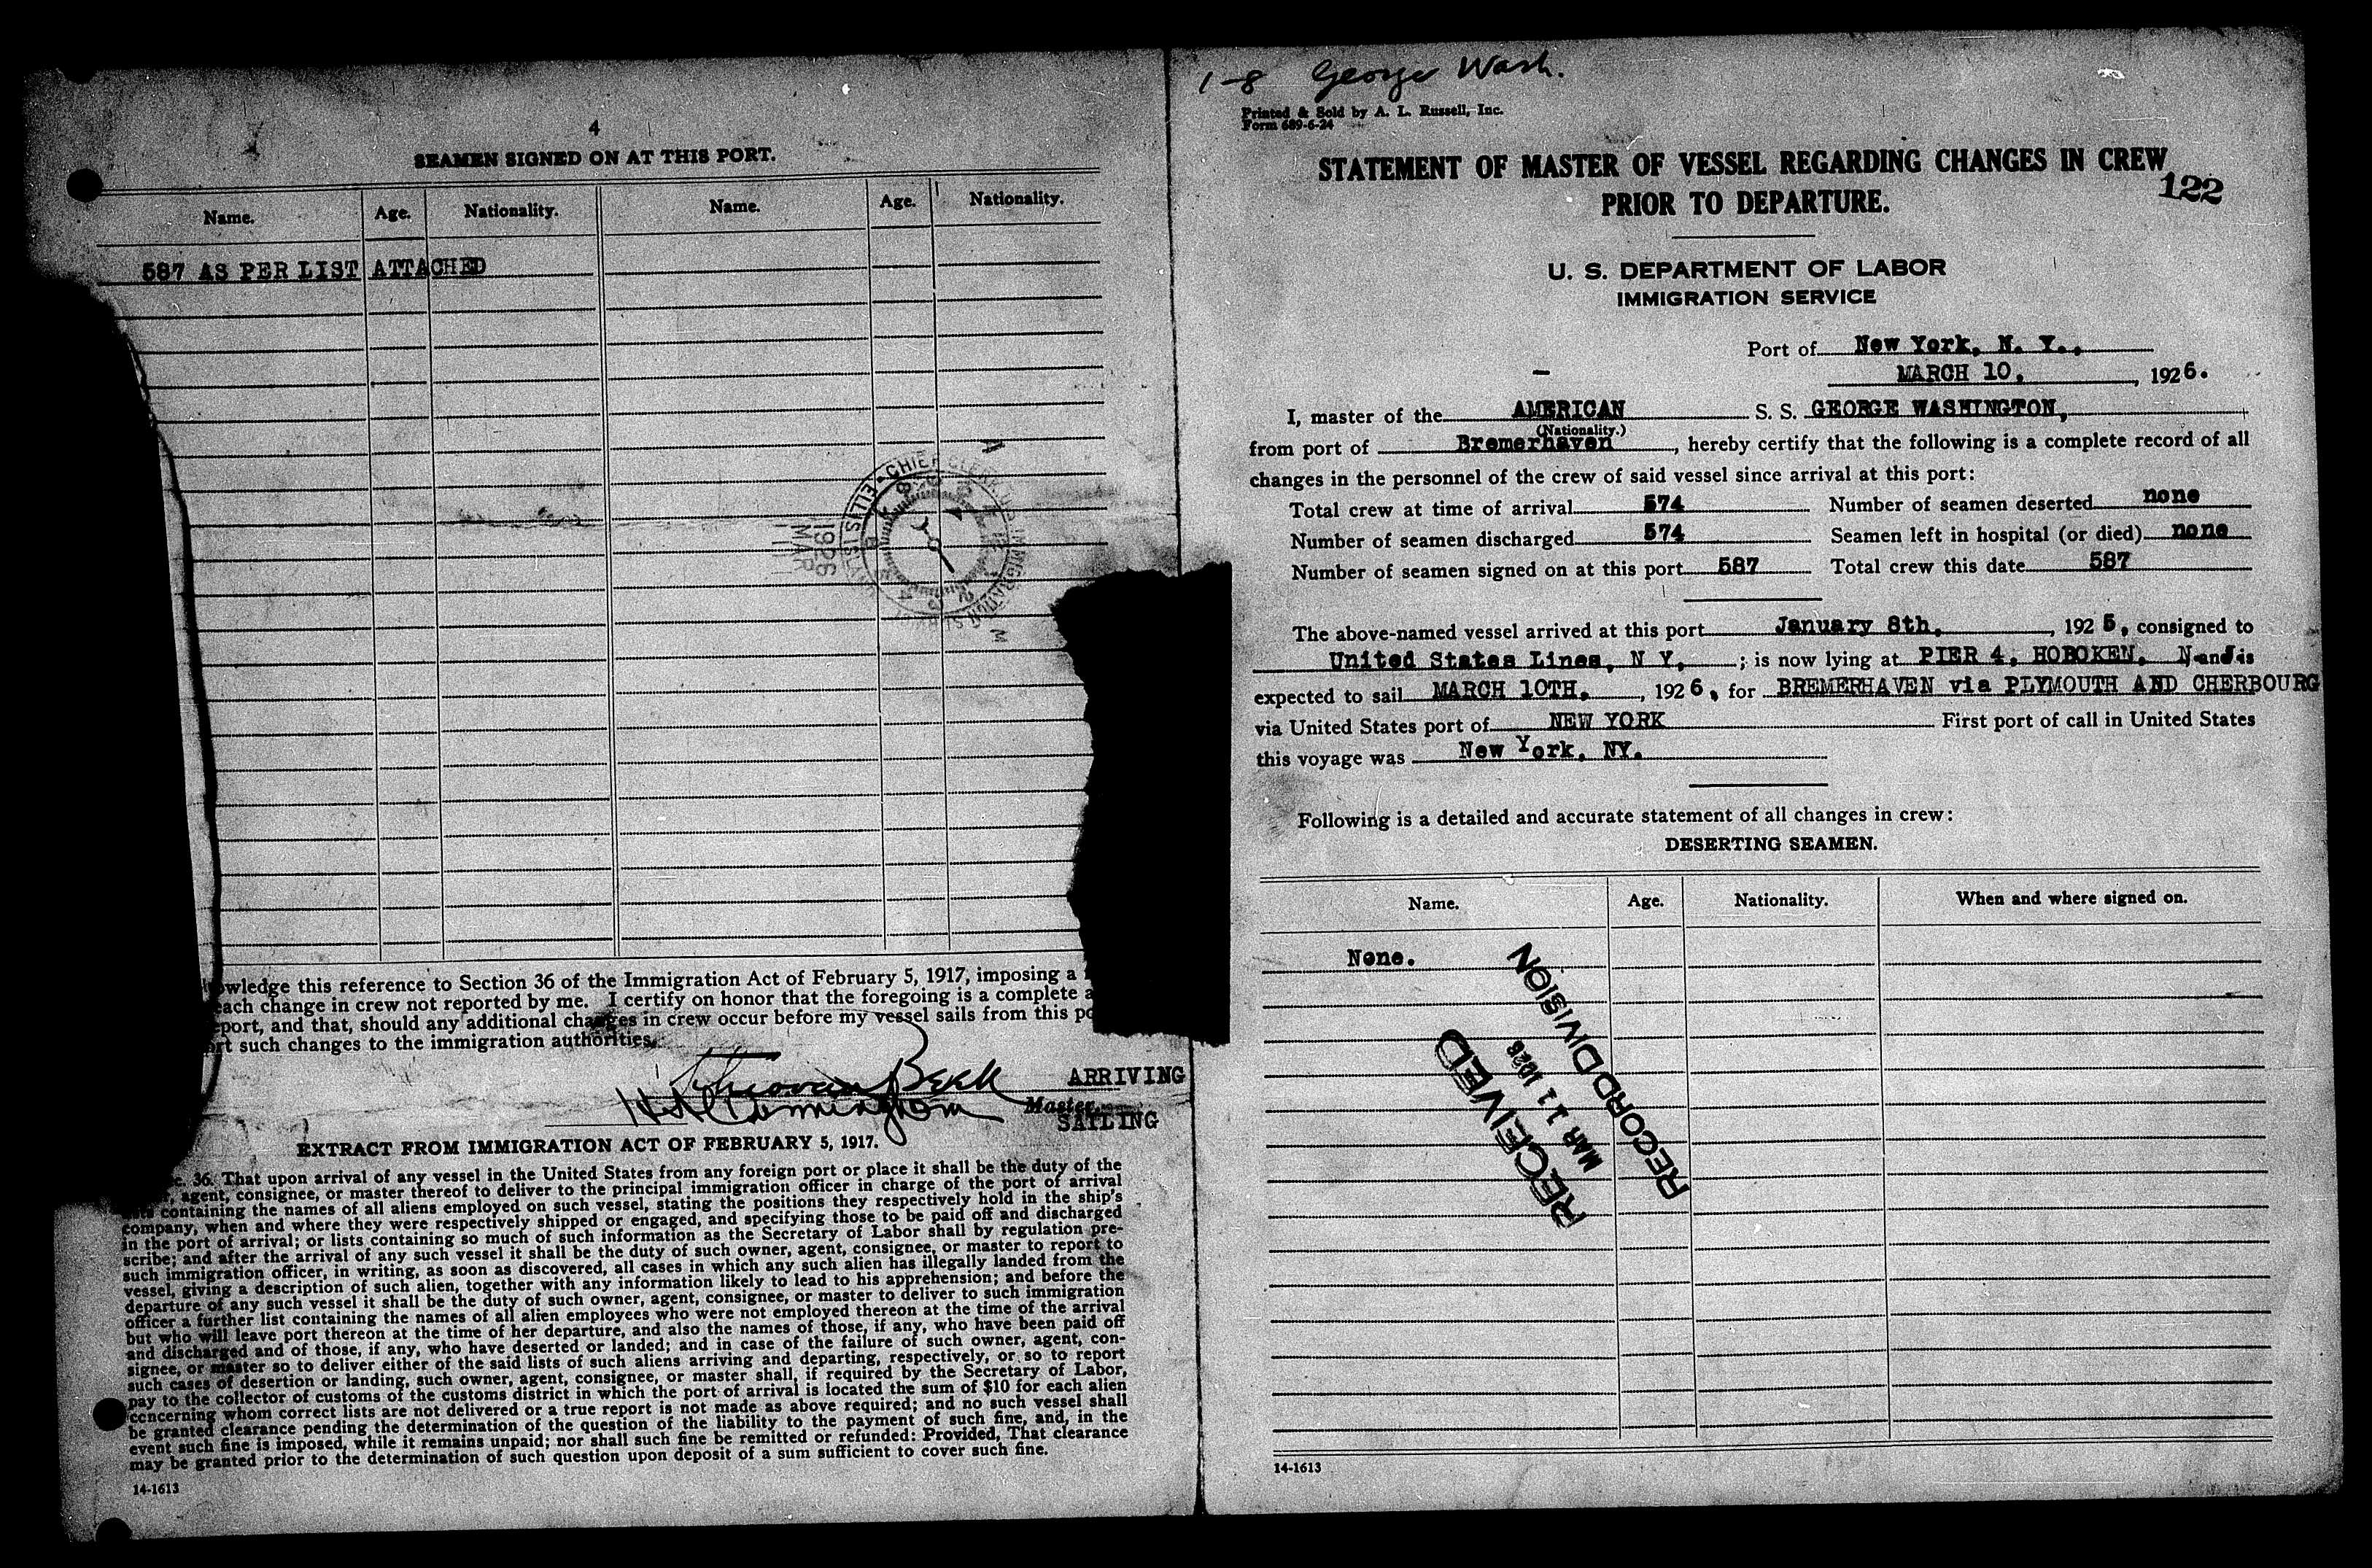 4
SEAMEN SIGNED ON AT THIS PORT.
Name. Age. Nationality. Name. Age. Nationality.
587 AS PER LIST ATTACHED
CHIEF CLERK
ELLIS ISL
IMMIGRATION
1926
MAR
11
wledge this reference to Section 36 of the Immigration Act of February 5, 1917, imposing a
each change in crew not reported by me. I certify on honor that the foregoing is a complete a
eport, and that, should any additional changes in crew occur before my vessel sails from this po
ort such changes to the immigration authorities.
ARRIVING
Master.
SAILING
EXTRACT FROM IMMIGRATION ACT OF FEBRUARY 5, 1917.
c. 36. That upon arrival of any vessel in the United States from any foreign port or place it shall be the duty of the
, agent, consignee, or master thereof to deliver to the principal immigration officer in charge of the port of arrival
containing the names of all aliens employed on such vessel, stating the positions they respectively hold in the ship's
company, when and where they were respectively shipped or engaged, and specifying those to be paid off and discharged
in the port of arrival; or lists containing so much of such information as the Secretary of Labor shall by regulation pre-
scribe; and after the arrival of any such vessel it shall be the duty of such owner, agent, consignee, or master to report to
such immigration officer, in writing, as soon as discovered, all cases in which any such alien has illegally landed from the
vessel, giving a description of such alien, together with any information likely to lead to his apprehension; and before the
departure of any such vessel it shall be the duty of such owner, agent, consignee, or master to deliver to such immigration
officer a further list containing the names of all alien employees who were not employed thereon at the time of the arrival
but who will leave port thereon at the time of her departure, and also the names of those, if any, who have been paid off
and discharged and of those, if any, who have deserted or landed; and in case of the failure of such owner, agent, con-
signee, or master so to deliver either of the said lists of such aliens arriving and departing, respectively, or so to report
such cases of desertion or landing, such owner, agent, consignee, or master shall, if required by the Secretary of Labor,
pay to the collector of customs of the customs district in which the port of arrival is located the sum of $10 for each alien
concerning whom correct lists are not delivered or a true report is not made as above required; and no such vessel shall
be granted clearance pending the determination of the question of the liability to the payment of such fine, and, in the
event such fine is imposed, while it remains unpaid; nor shall such fine be remitted or refunded: Provided, That clearance
may be granted prior to the determination of such question upon deposit of a sum sufficient to cover such fine.
14-1613
1-8 George Wash.
Printed & Sold by A. L. Russell, Inc.
Form 689-6-24
STATEMENT OF MASTER OF VESSEL REGARDING CHANGES IN CREW
PRIOR TO DEPARTURE.
122
U. S. DEPARTMENT OF LABOR
IMMIGRATION SERVICE
Port of New York, N. Y.,
MARCH 10, , 1926.
I, master of the AMERICAN S. S. GEORGE WASHINGTON,
(Nationality.)
from port of Bremerhaven , hereby certify that the following is a complete record of all
changes in the personnel of the crew of said vessel since arrival at this port:
Total crew at time of arrival 574 Number of seamen deserted none
Number of seamen discharged 574 Seamen left in hospital (or died) none
Number of seamen signed on at this port 587 Total crew this date 587
The above-named vessel arrived at this port January 8th, , 192 5, consigned to
United States Lines, N Y, ; is now lying at PIER 4, HOBOKEN, N J and is
expected to sail MARCH 10TH, , 192 6, for BREMERHAVEN via PLYMOUTH AND CHERBOURG
via United States port of NEW YORK First port of call in United States
this voyage was New York, NY.
Following is a detailed and accurate statement of all changes in crew:
DESERTING SEAMEN.
Name. Age. Nationality. When and where signed on.
None.
RECEIVED
MAR 11 1926
RECORD DIVISION
14-1613